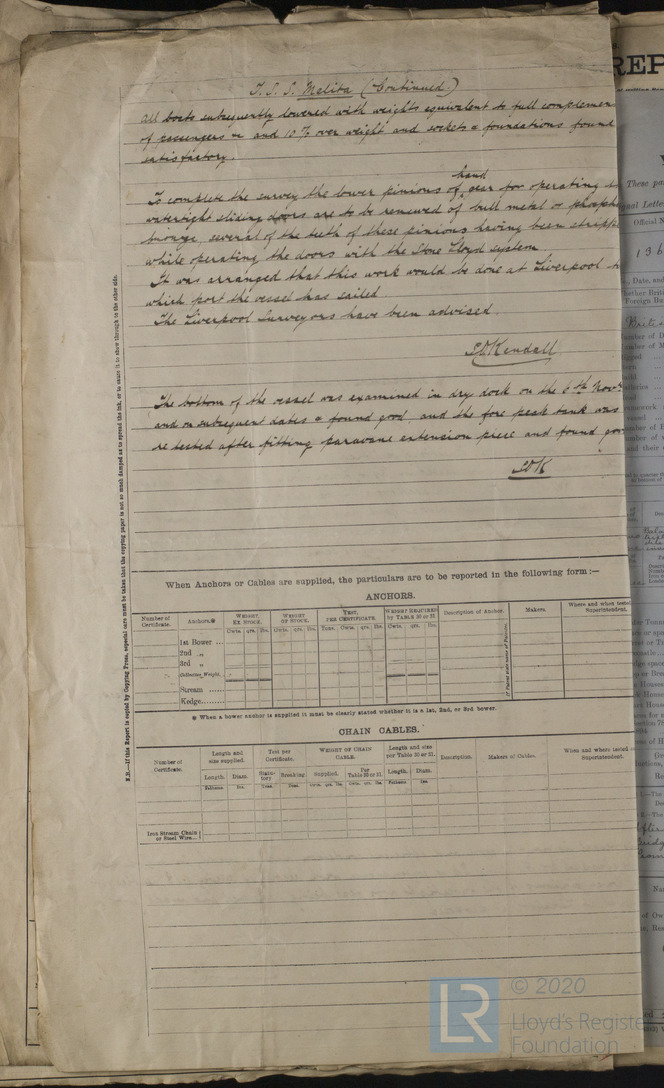 T. S. S. Melita (Continued)
All boats subsequently lowered with weights equivalent to full complemen
of passengers and 10% over weight and sockets & foundations found
satisfactory.
hand
To complete the survey the lower pinions of gear for operating
watertight sliding doors are to be renewed of bull metal or phosph
bronze, several of the teeth of these pinions having been stripp
while operating the doors with the Stone Lloyd system
It was arranged that this work would be done at Liverpool to
which port the vessel has sailed
The Liverpool Surveyors have been advised.
Kendall
The bottom of the vessel was examined in dry dock on the 6th Novr
and on subsequent dates & found good and the fore peak tank was
re tested after fitting paravane extension piece and found goo
N.B.—If this Report is copied by Copying Press, especial care must be taken that the copying paper is not so much damped as to spread the ink, or to cause it to show through to the other side.
When Anchors or Cables are supplied, the particulars are to be reported in the following form:—
ANCHORS.
Number of Certificate. Anchors.* WEIGHT, EX STOCK. WEIGHT OF STOCK. TEST, PER CERTIFICATE. WEIGHT REQUIRED by TABLE 30 or 31 Description of Anchor. Makers. Where and when tested Superintendent.
Cwts. qrs. lbs. Cwts. qrs. lbs. Tons. Cwts. qrs. lbs. Cwts. qrs. lbs.
1st Bower ...
2nd „
3rd „
Collective Weight.
Stream ......
Kedge........
* When a bower anchor is supplied it must be clearly stated whether it is a 1st, 2nd, or 3rd bower.
CHAIN CABLES.
Number of Certificate. Length and size supplied. Test per Certificate. WEIGHT OF CHAIN CABLE. Length and size per Table 30 or 31. Description. Makers of Cables. When and where tested Superintendent.
Length. Diam. Statutory Breaking Supplied. Per Table 30 or 31. Length. Diam.
Fathoms. Ins. Tons. Tons. Cwts. qrs. lbs. Cwts. qrs. lbs. Fathoms. Ins.
Iron Stream Chain
or Steel Wire...
REP
These pa
Official N
136
Date, and
Foreign
LR © 2020
Lloyd's Register
Foundation